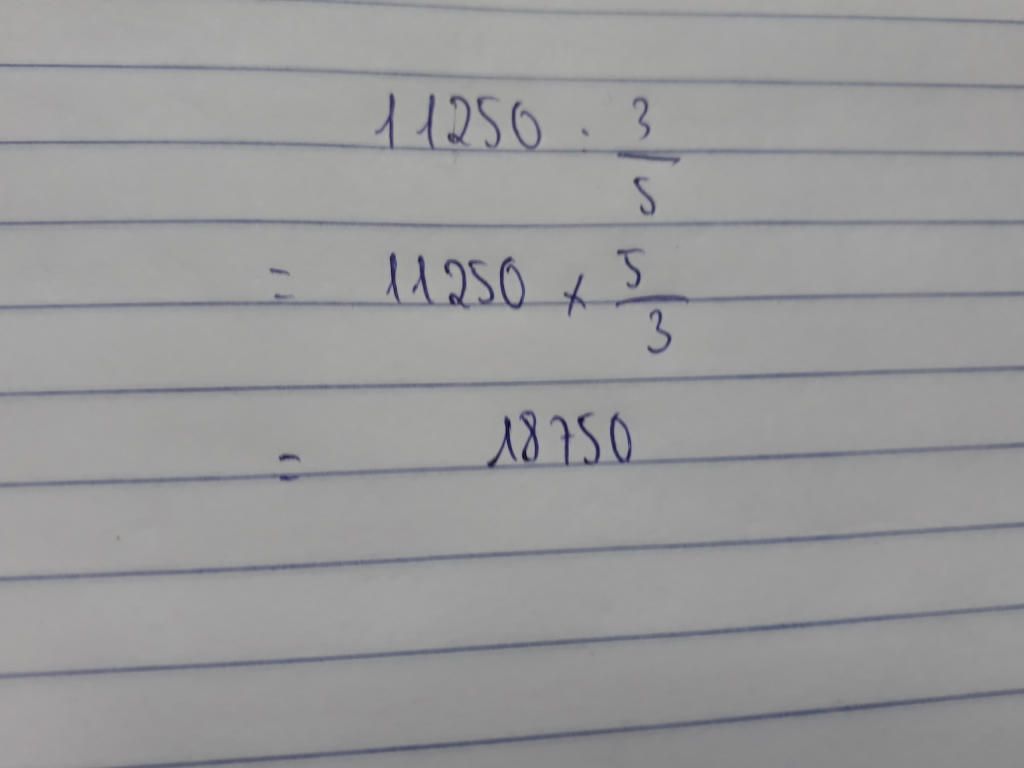 11250 : 3/5
= 11250 x 5/3
= 18750